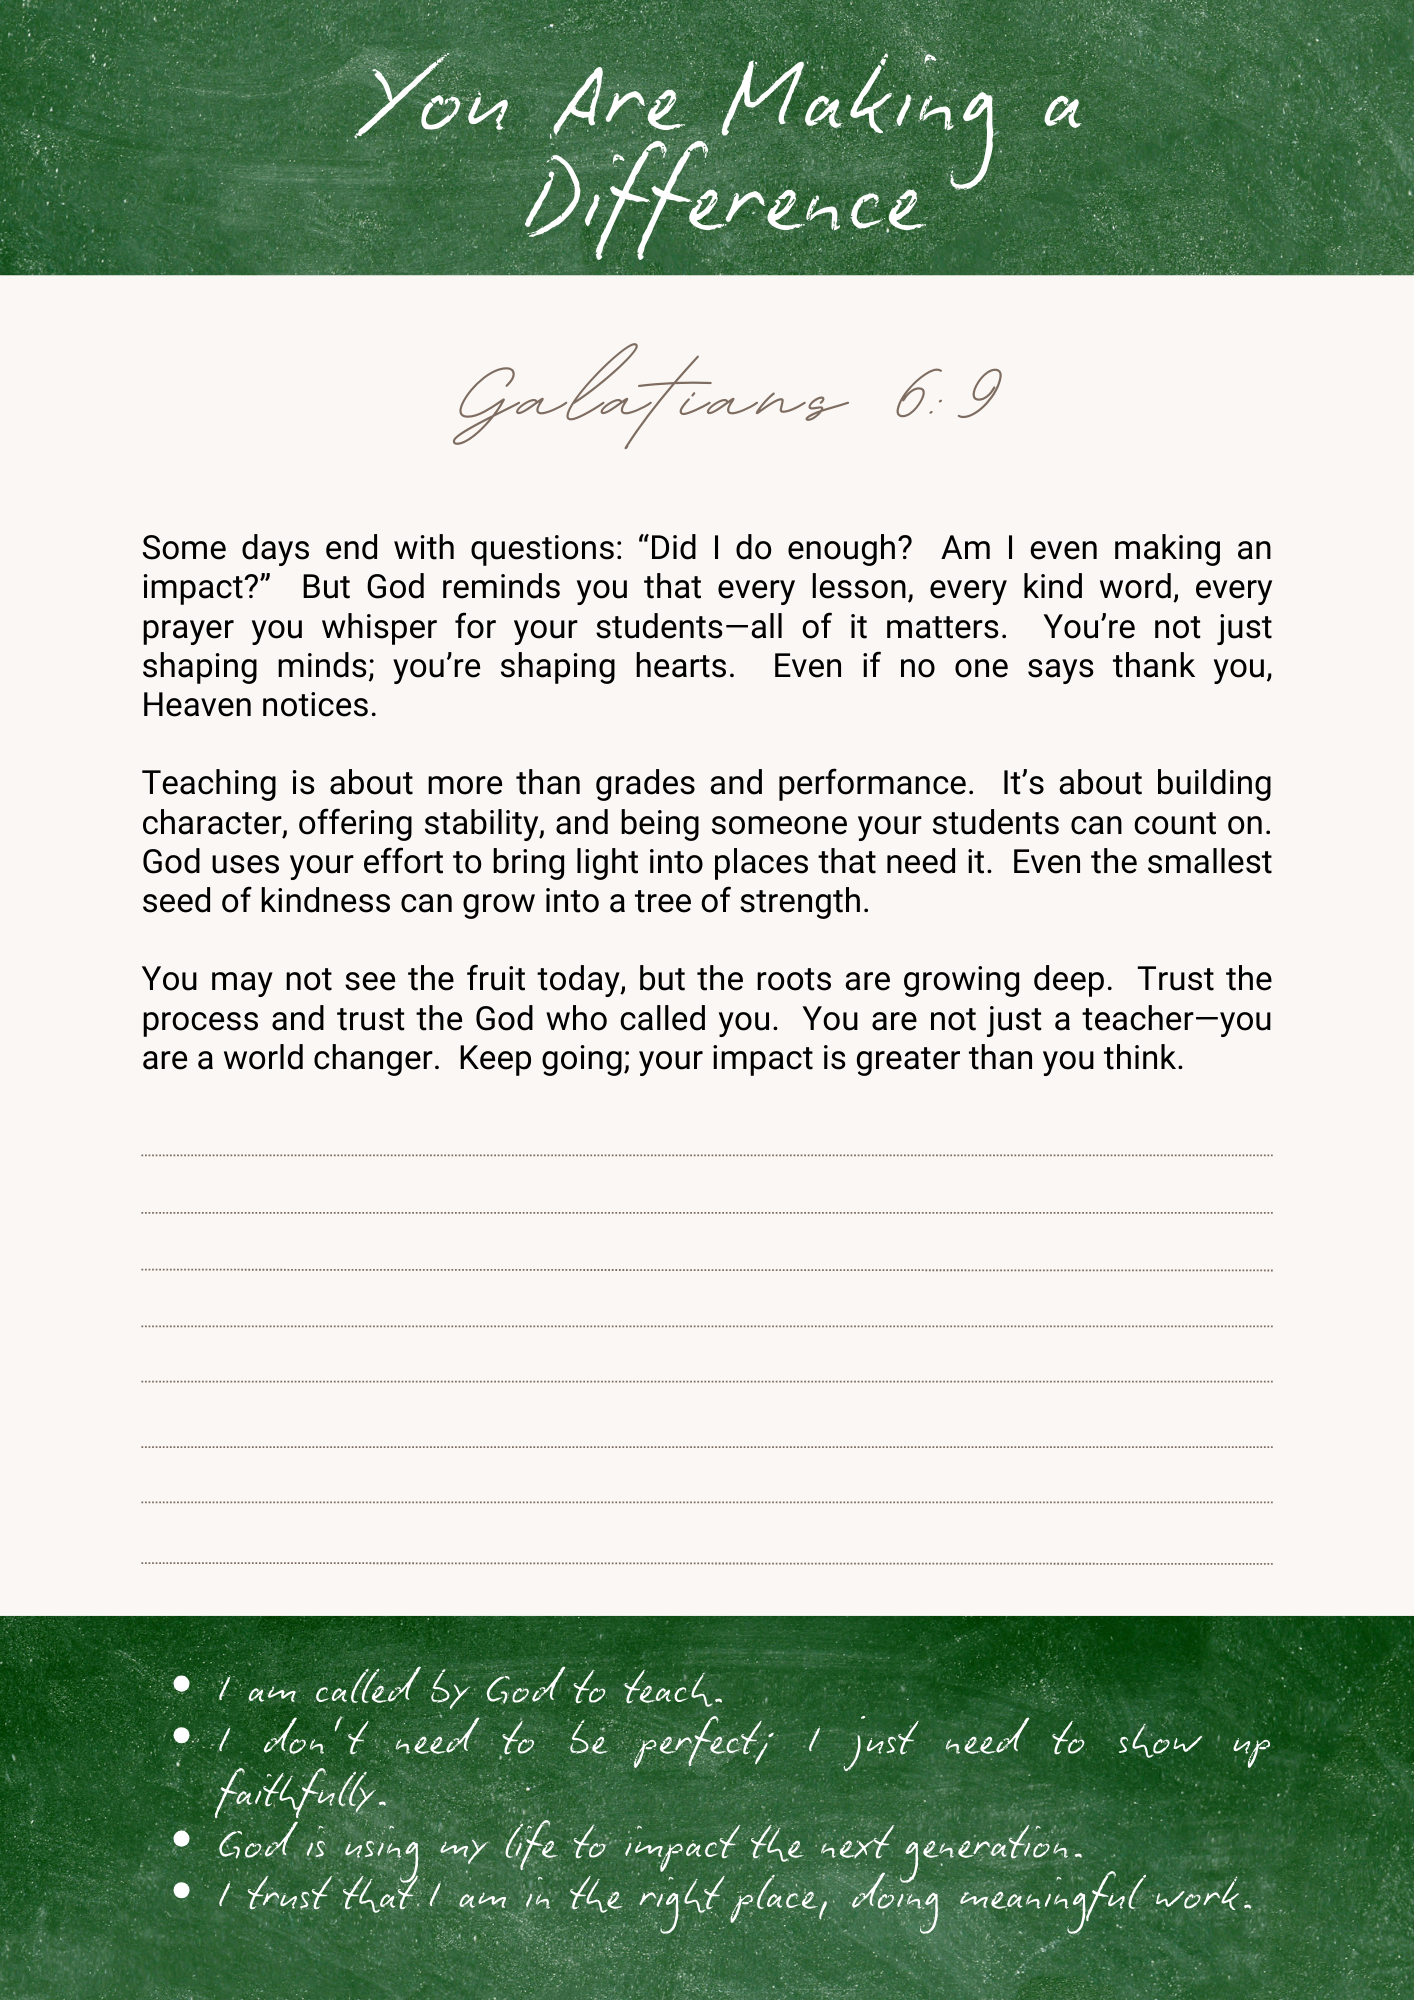 You Are Making a
Difference
Galatians 6:9
Some days end with questions: “Did I do enough?  Am I even making an
impact?”  But God reminds you that every lesson, every kind word, every
prayer you whisper for your students—all of it matters.  You’re not just
shaping minds; you’re shaping hearts.  Even if no one says thank you,
Heaven notices.
Teaching is about more than grades and performance.  It’s about building
character, offering stability, and being someone your students can count on.
God uses your effort to bring light into places that need it.  Even the smallest
seed of kindness can grow into a tree of strength.
You may not see the fruit today, but the roots are growing deep.  Trust the
process and trust the God who called you.  You are not just a teacher—you
are a world changer.  Keep going; your impact is greater than you think.
• I am called by God to teach.
• I don't need to be perfect; I just need to show up
faithfully.
• God is using my life to impact the next generation.
• I trust that I am in the right place, doing meaningful work.